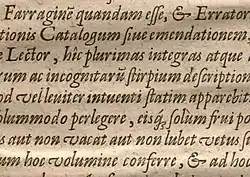 Farraginē quandam eſſe, & Errato
tionis Catalogum ſiue emendationem,
e Lector, hîc plurimas integras atque
rum ac incognitarū ſtirpium deſcription
od vel leuiter intuenti ſtatim apparebit
olummodo perlegere, eisq́; ſolum frui po
s aut non vacat aut non lubet vetus ſu
um hoc volumine conferre, & ad hoc